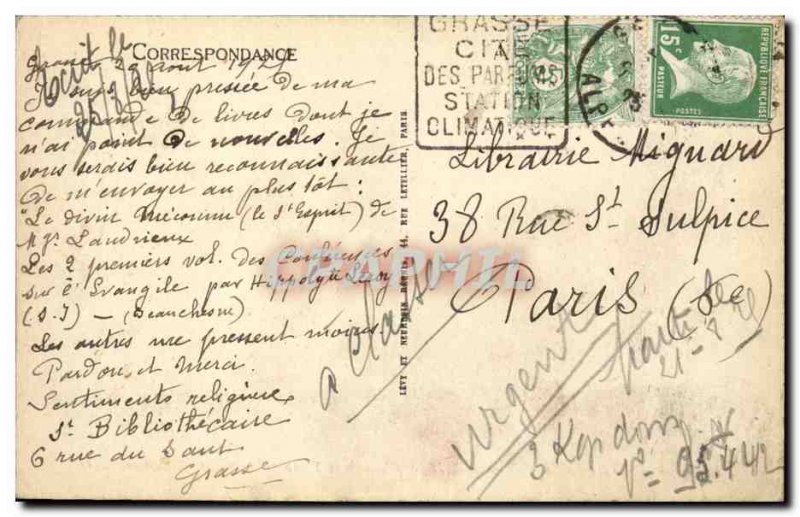 CORRESPONDANCE
Grasse 20 août 192
Je suis bien pressée de ma
commande de livres dont je
n'ai point de nouvelles. Je
vous serais bien reconnaissante
de m'envoyer au plus tôt :
"Le divin méconnu (le St Esprit) de
Mgr Landrieux
Les 2 premiers vol. des Conférences
sur l'Evangile par Hippolyte Leroy
(S.J) - (Beauchesne)
Les autres me pressent moins.
Pardon et merci.
Sentiments religieux
St Bibliothécaire
6 rue du Saut
Grasse
Ecrit le
25/8/25
LÉVY ET NEURDEIN RÉUNIS, 44, RUE LETELLIER, PARIS
GRASSE
CITÉ
DES PARFUMS
STATION
CLIMATIQUE
ALP
15c
RÉPUBLIQUE FRANÇAISE
PASTEUR
POSTES
Librairie Mignard
38 Rue St Sulpice
Paris (
CPAPHIL
à classer
urgent
21-8-25
3